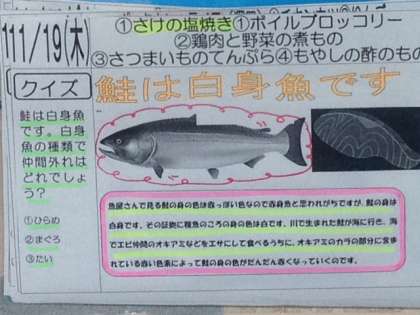 11/19(木)
①さけの塩焼き①ボイルブロッコリー
②鶏肉と野菜の煮もの
③さつまいものてんぷら④もやしの酢のもの
クイズ
鮭は白身魚です
鮭は白身魚
です。白身
魚の種類で
仲間外れは
どれでしょ
う？
①ひらめ
②まぐろ
③たい
魚屋さんで見る鮭の身の色は赤っぽい色なので赤身魚と思われがちですが、鮭の身は
白身です。その証拠に稚魚のころの身の色は白です。川で生まれた鮭が海に行き、海
でエビ仲間のオキアミなどをエサにして食べるうちに、オキアミのカラの部分に含ま
れている赤い色素によって鮭の身の色がだんだん赤くなっていくのです。